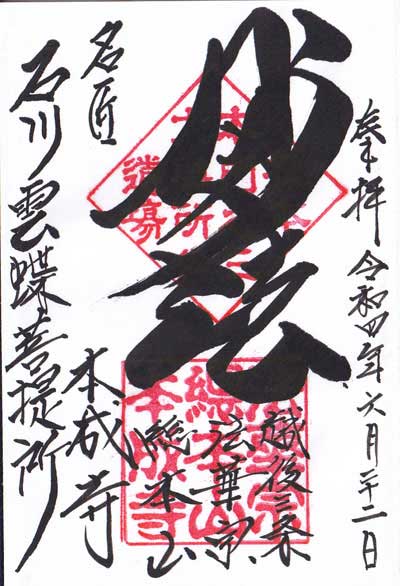 奉拝 令和四年六月二十二日
妙法
越後三条
法華宗
総本山
本成寺
名匠
石川雲蝶菩提所